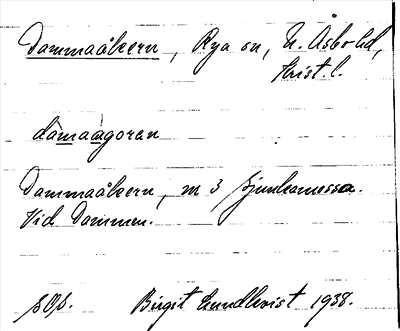 Dammaåkern, Rya sn, N. Åsbo hd,
Krist. l.
dàmaàgoren
Dammaåkern, nr 3 Ljunkamossa.
Vid Dammen.
Birgit Lundkvist 1938.